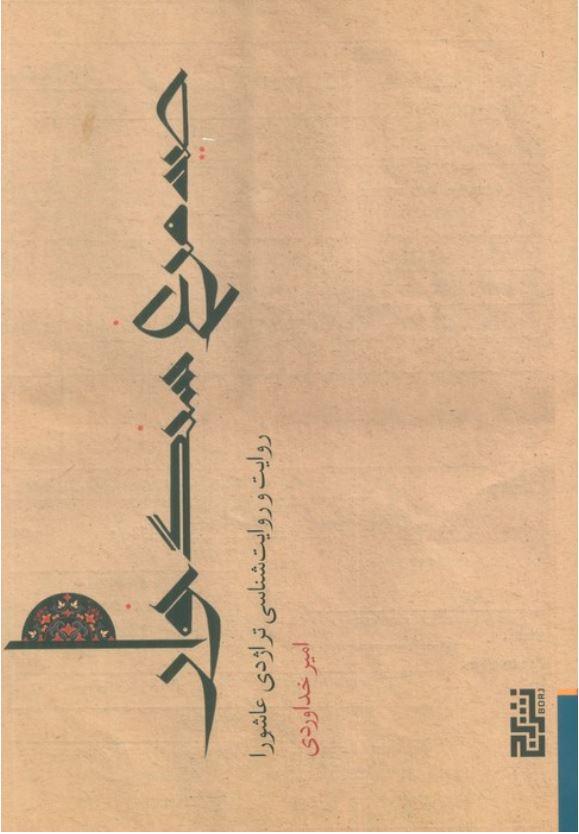 سیمرغ سنگ‌خوار
روایت و روایت‌شناسی تراژدی عاشورا
امیر خداوردی
نشر برج
BORJ